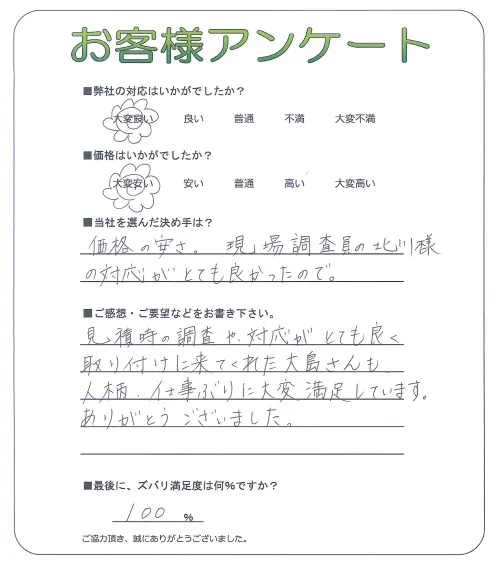 お客様アンケート
■弊社の対応はいかがでしたか？
大変良い 良い 普通 不満 大変不満
■価格はいかがでしたか？
大変安い 安い 普通 高い 大変高い
■当社を選んだ決め手は？
価格の安さ。現場調査員の北川様
の対応がとても良かったので。
■ご感想・ご要望などをお書き下さい。
見積時の調査や、対応がとても良く
取り付けに来てくれた大島さんも、
人柄、仕事ぶりに大変満足しています。
ありがとうございました。
■最後に、ズバリ満足度は何%ですか？
100 %
ご協力頂き、誠にありがとうございました。